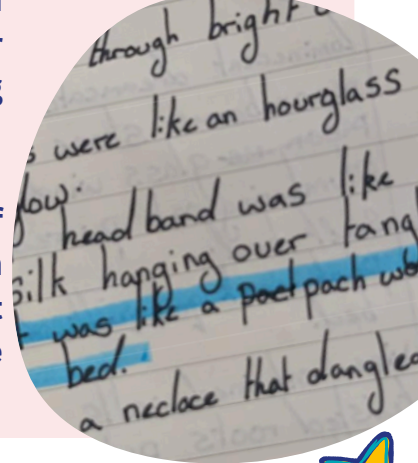 through bright
were like an hourglass
headband was like
silk hanging over
was like a pach
bed.
a neclace that dangled